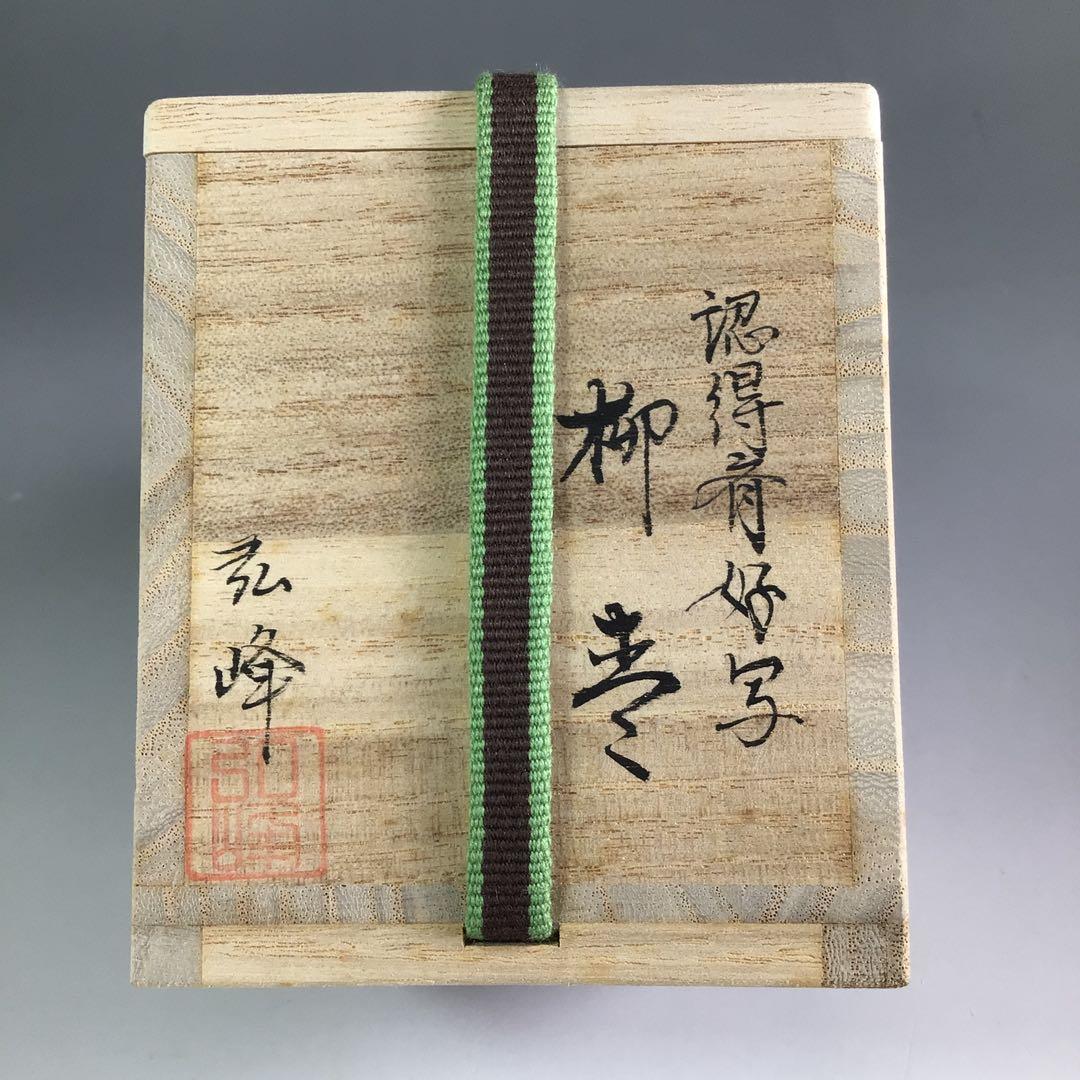 認得斎好写
柳棗
弘峰
弘峰